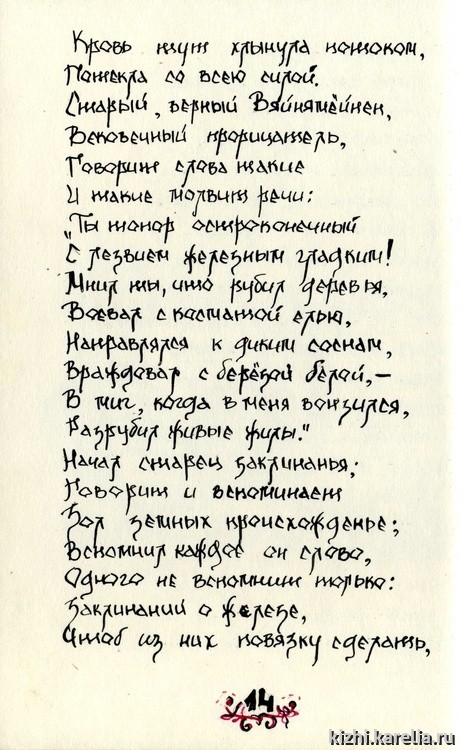 Кровь тут хлынула потоком,
Потекла со всею силой.
Старый, верный Вяйнямёйнен,
Вековечный прорицатель,
Говорит слова такие
И такие молвит речи:
„Ты топор остроконечный
С лезвием железным гладким!
Мнил ты, что рубил деревья,
Воевал с косматой елью,
Направлялся к диким соснам,
Враждовал с берёзой белой,—
В миг, когда в меня вонзился,
Разрубил живые жилы."
Начал старец заклинанья;
Говорит и вспоминает
Зол земных происхожденье;
Вспомнил каждое он слово,
Одного не вспомнит только:
Заклинаний о железе,
Чтоб из них повязку сделать,
14
kizhi.karelia.ru